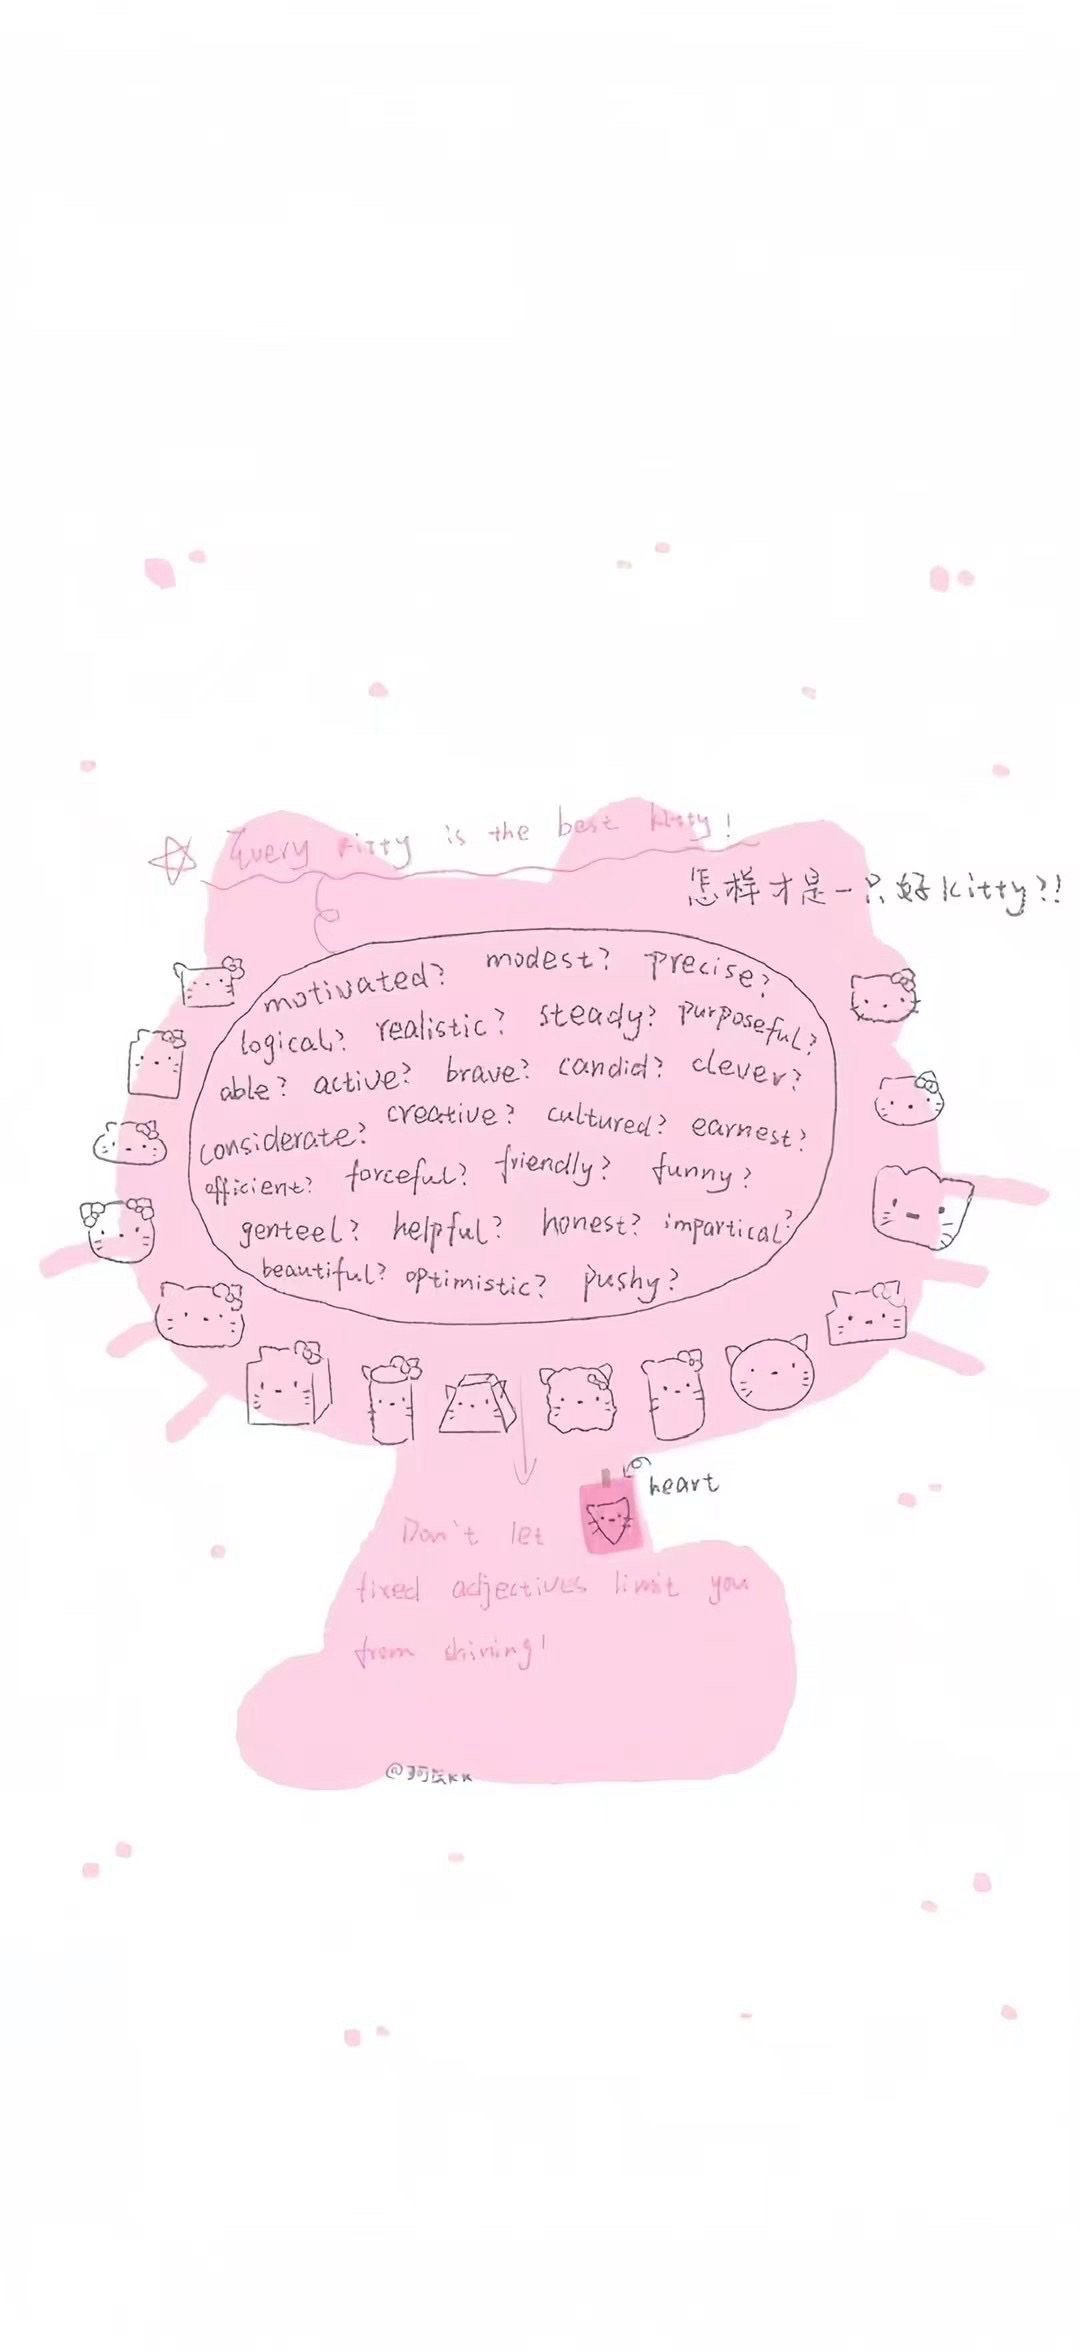 Every kitty is the best kitty!
怎样才是一只好kitty?!
motivated? modest? precise?
logical? realistic? steady? purposeful?
able? active? brave? candid? clever?
considerate? creative? cultured? earnest?
efficient? forceful? friendly? funny?
genteel? helpful? honest? impartical?
beautiful? optimistic? pushy?
heart
Don't let
fixed adjectives limit you
from shining!